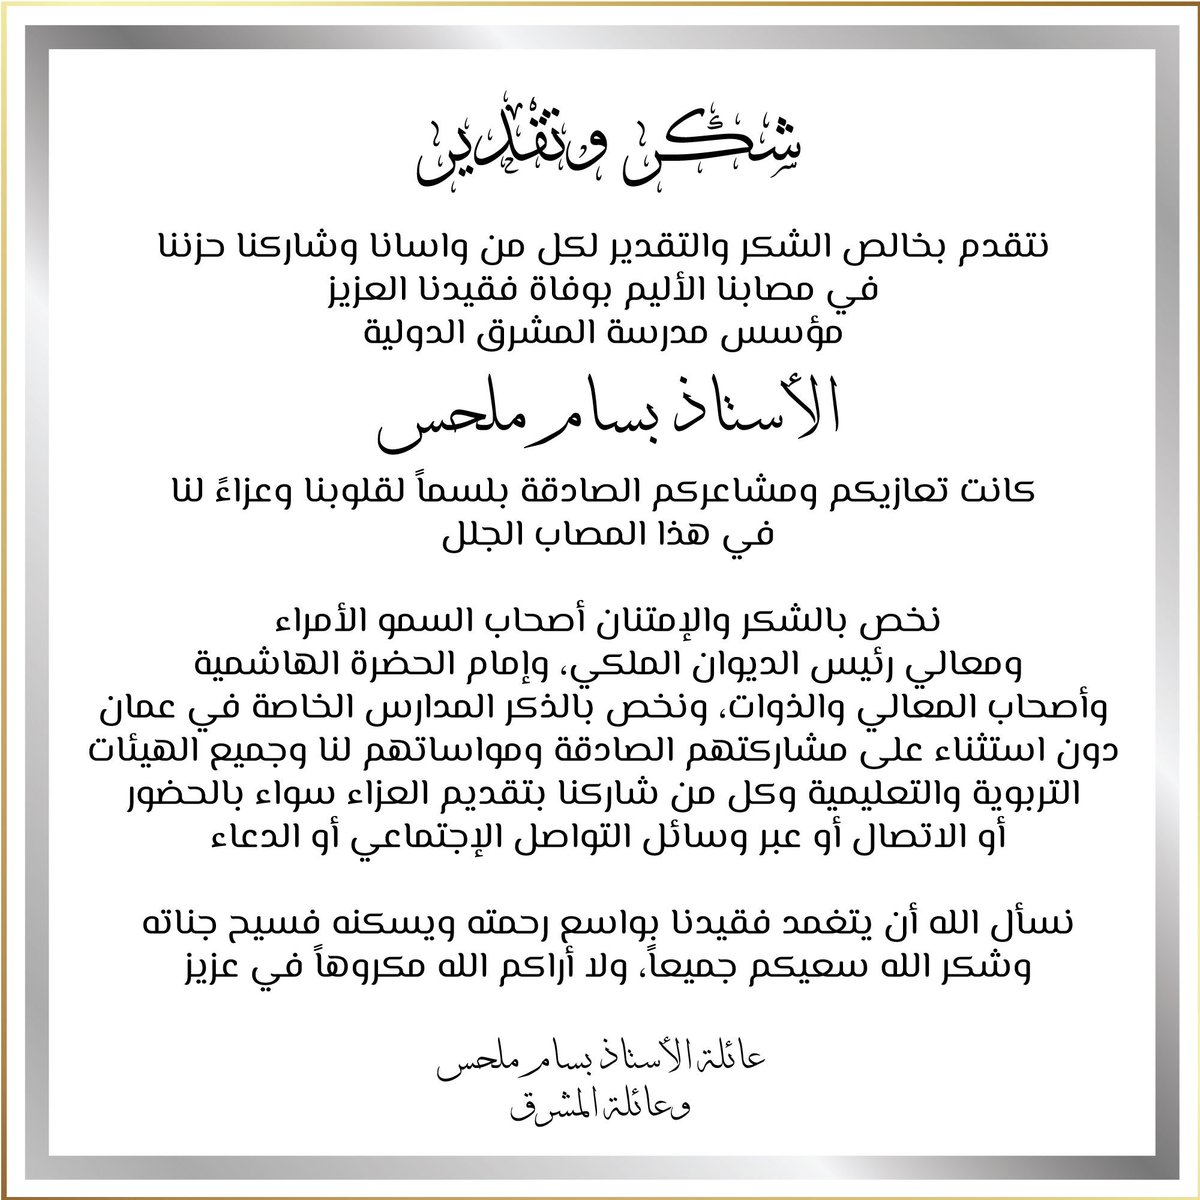 شكر وتقدير
نتقدم بخالص الشكر والتقدير لكل من واسانا وشاركنا حزننا
في مصابنا الأليم بوفاة فقيدنا العزيز
مؤسس مدرسة المشرق الدولية
الأستاذ بسام ملحس
كانت تعازيكم ومشاعركم الصادقة بلسماً لقلوبنا وعزاءً لنا
في هذا المصاب الجلل
نخص بالشكر والإمتنان أصحاب السمو الأمراء
ومعالي رئيس الديوان الملكي، وإمام الحضرة الهاشمية
وأصحاب المعالي والذوات، ونخص بالذكر المدارس الخاصة في عمان
دون استثناء على مشاركتهم الصادقة ومواساتهم لنا وجميع الهيئات
التربوية والتعليمية وكل من شاركنا بتقديم العزاء سواء بالحضور
أو الاتصال أو عبر وسائل التواصل الإجتماعي أو الدعاء
نسأل الله أن يتغمد فقيدنا بواسع رحمته ويسكنه فسيح جناته
وشكر الله سعيكم جميعاً، ولا أراكم الله مكروهاً في عزيز
عائلة الأستاذ بسام ملحس
وعائلة المشرق